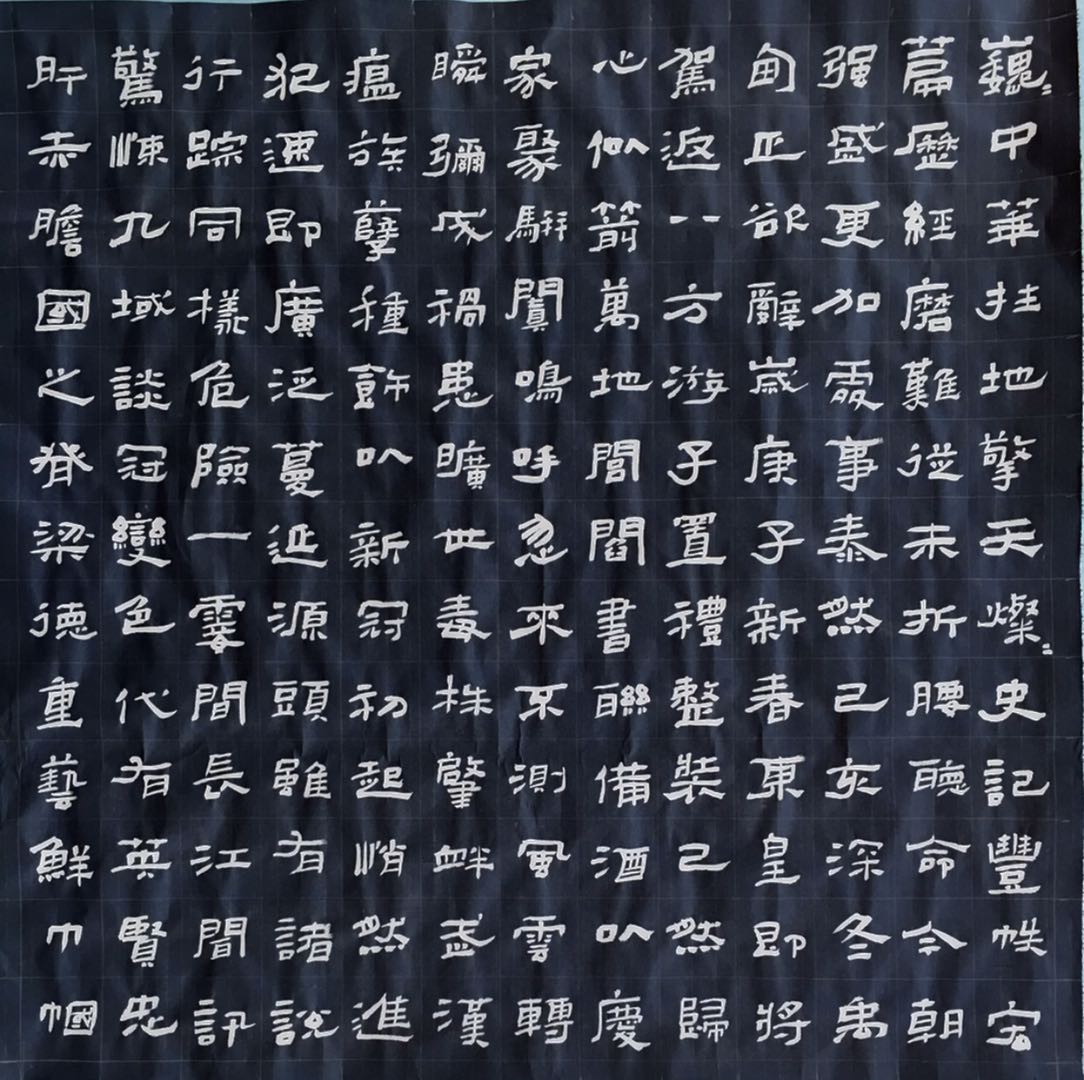 巍〻中華拄地擎天燦〻史記豐帙宏
篇歷經磨難從未折腰聽命今朝
强盛更加處事泰然己亥深冬禹
甸正欲辭歲庚子新春東皇即將
駕返八方游子置禮整裝已然歸
心似箭萬地閭閻書聯備酒以慶
家聚駢闐鳴呼忽來不測風雲轉
瞬彌成禍患曠世毒株肇衅武漢
瘟族孽種飾以新冠初起悄然進
犯速即廣泛蔓延源頭雖有諸說
行踪同樣危險一霎間長江間訊
驚悚九域談冠變色代有英賢忠
肝赤膽國之脊梁德重藝鮮巾幗